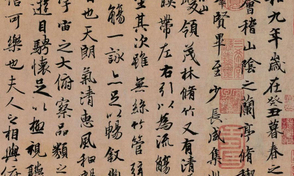 和九年歲在癸丑暮春之
會稽山陰之蘭亭脩
賢畢至少長咸集
領茂林脩竹又有清
暎帶左右引以為流觴
坐其次雖無絲竹管
觴一詠亦足以暢敘
日也天朗氣清惠風和暢
宇宙之大俯察品類之
遊目騁懷足以極視聽
可樂也夫人之相與俯